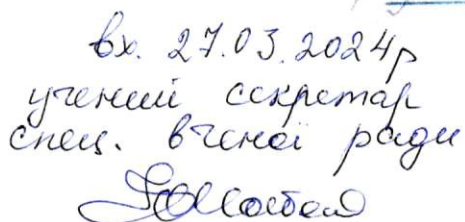 вх. 27.03.2024р
учений секретар
спец. вченої ради